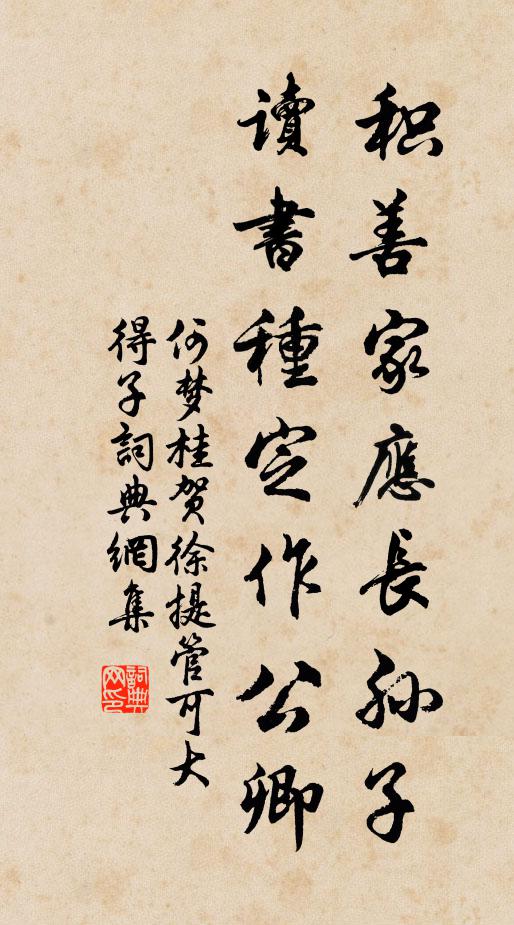 积善家應長孙子
讀書種定作公卿
何梦桂贺徐提管可大
得子詞典網集
詞典
网印